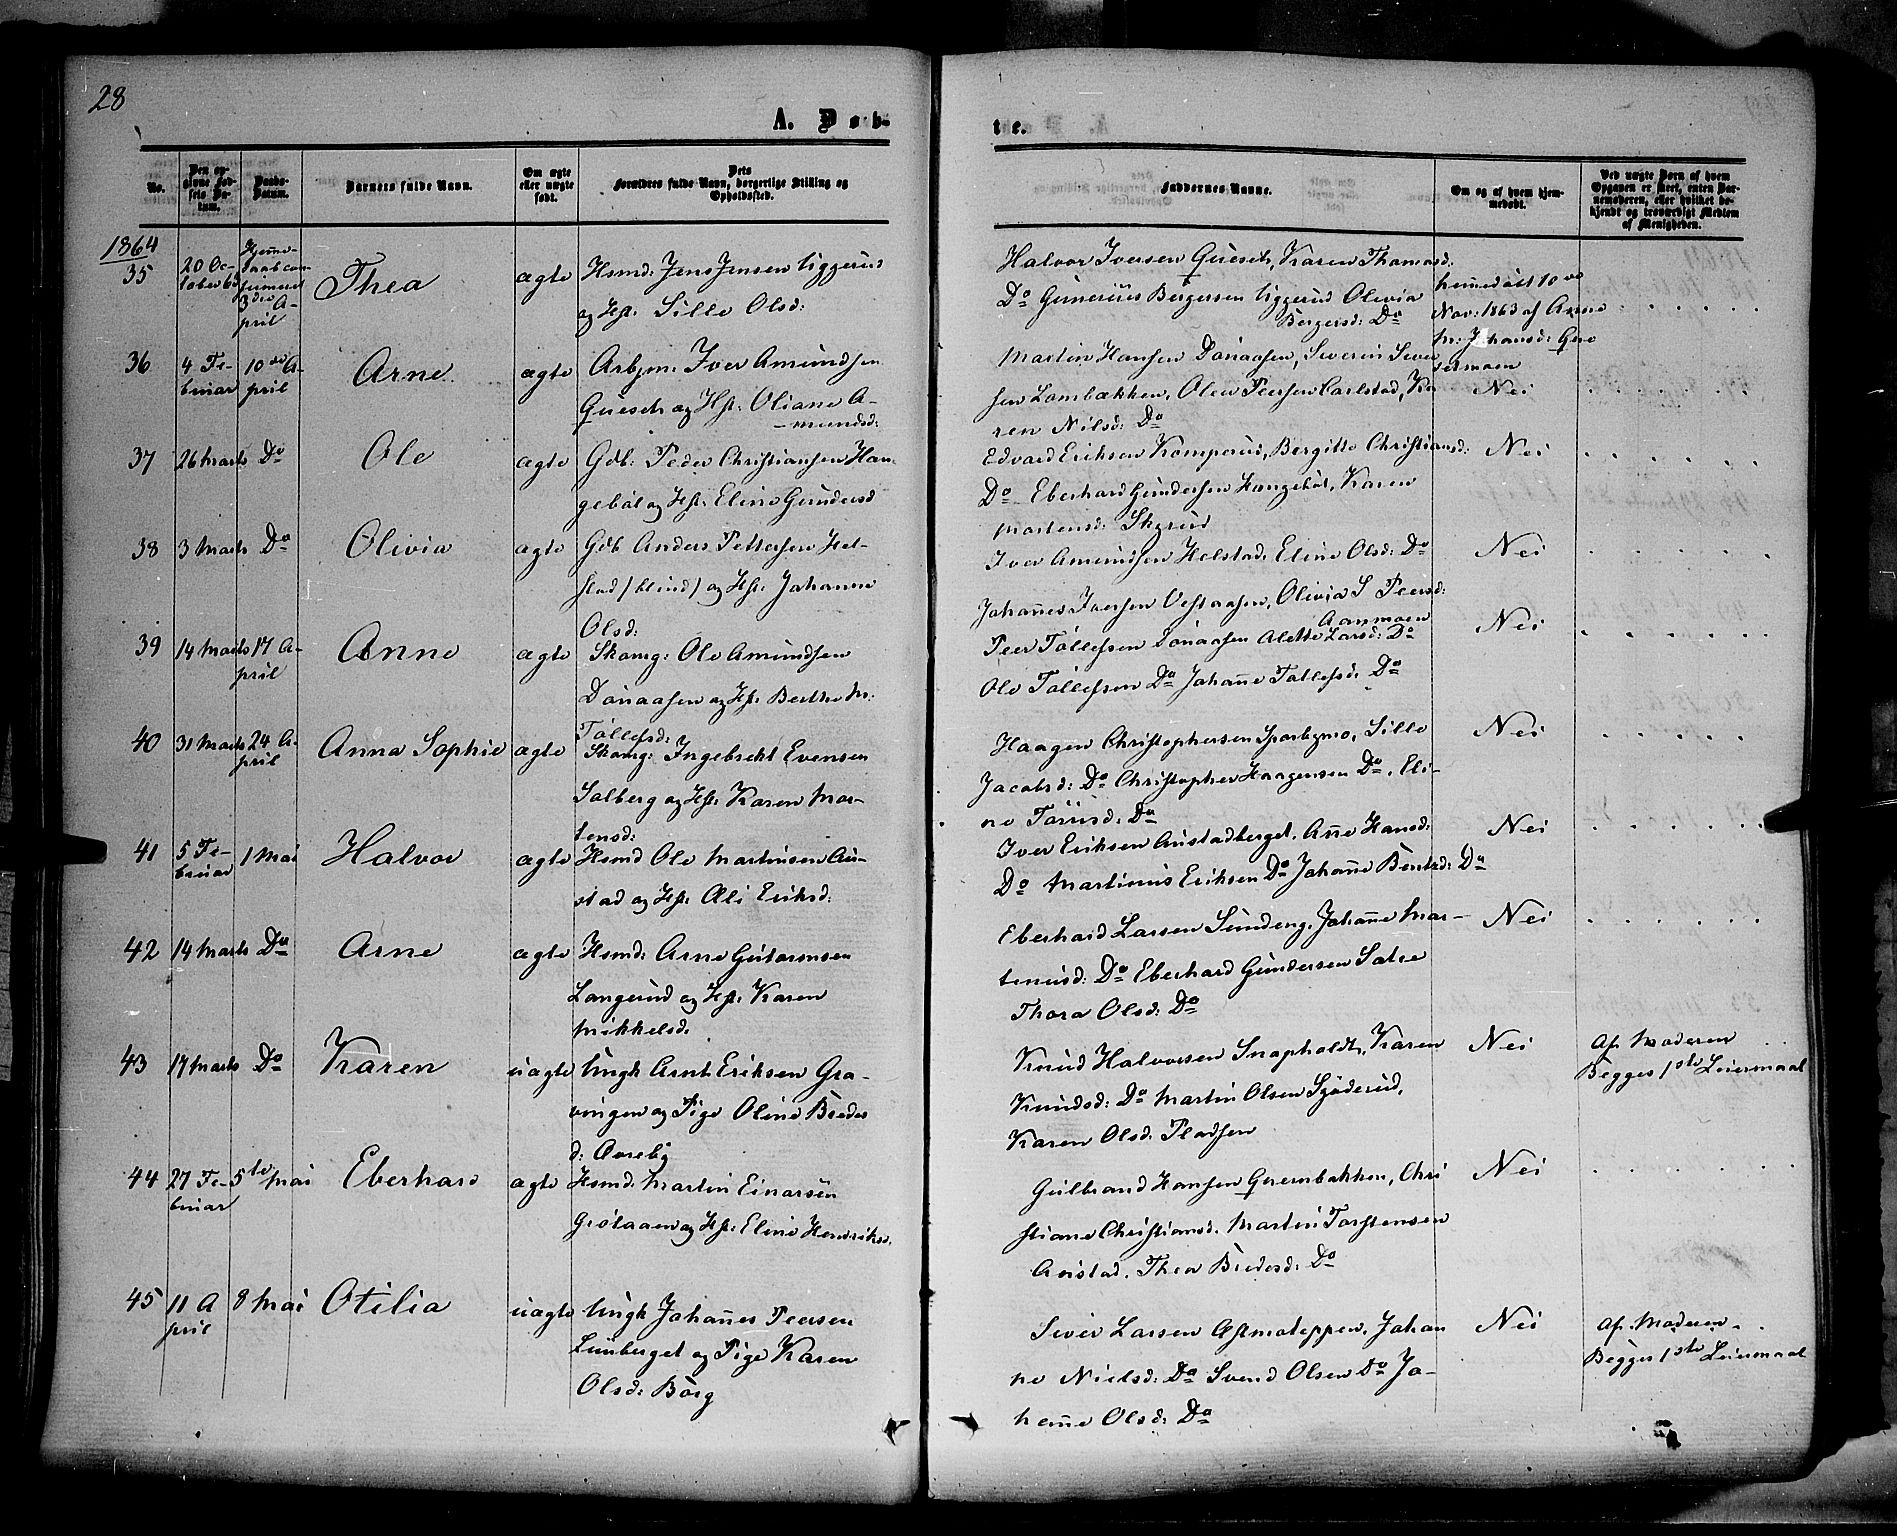 28
A. Døb-
te.
No.
Den op-
givne Fød-
sels Da-
tum.
Daabs-
Datum.
Barnets fulde Navn.
Om ægte
eller uægte
født.
Dets
Forældres fulde Navn, borgerlige Stilling og
Opholdssted.
Faddernes Navne.
Om og af hvem hjem-
medøbt.
Ved uægte Børn af hvem
Opgaven er skeet, enten Bar-
nemoderen, eller hvilket be-
kjendt og troværdigt Medlem
af Menigheden.
1864
35
20 Oc-
tober 63
3die A-
pril
Thea
ægte
Hsmd: Jens Jensen Uggerud
og Hst: Sille Olsd:
Halvor Iversen Quesett, Karen Thomasd:
Do Gunerius Bergersen Uggerud Olivia
Bergersd: Do
hjemmedøbt 10de
Nov: 1863 af Anne
M. Johansd:
36
4 Fe-
bruar
10de A-
pril
Arne
ægte
Arbm: Iver Amundsen
og Hst: Oliane A-
mundsd:
Martin Hansen Dønaasen, Severin Sever
sen Lombækken, Olea Peersen Carlstad, Ka
ren Nilsd: Do
Nei
37
26 Marts
Do
Ole
ægte
Gdb: Peder Christiansen Han-
gebøl og Hst: Eline Gundersd
Edvard Eriksen Komperud, Bergitte Christiansd:
Do Eberhard Gundersen Hangebøl, Karen
Martensd: Skyrud
Nei
38
3 Marts
Do
Olivia
ægte
Gdb Anders Pettersen Hel-
stad /blind/ og Hst: Johanne
Olsd:
Iver Amundsen Helstad, Eline Olsd: Do
Johanes Iversen Vestaasen, Olivia S Peersd:
Aanmoen
Nei
39
14 Marts
17 A-
pril
Anne
ægte
Skomg: Ole Amundsen
Dønaasen og Hst: Berthe M.
Tollefsd:
Peer Tollefsen Dønaasen Alette Larsd: Do
Ole Tollefsen Do Johanne Tollefsd: Do
Nei
40
31 Marts
24 A-
pril
Anna Sophie
ægte
Skomg: Ingebrekt Evensen
Solberg og Hst: Karen Mor-
tensd:
Haagen Christophersen Sparbymo, Sille
Jacobsd: Do Christopher Haagensen Do, Eli-
ne Do
Nei
41
5 Fe-
bruar
1 Mai
Halvor
ægte
Hsmd Ole Martinsen Au-
stad og Hst: Oli Eriksd:
Iver Eriksen Austadberget, Anne Hansd:
Do Martinius Eriksen Do Johanne Berntsd: Do
Nei
42
14 Marts
Do
Arne
ægte
Hsmd: Arne Guttormsen
Langerud og Hst: Karen
Mikkelsd:
Eberhard Larsen Sundeng, Johanne Mar-
tenusd: Do Eberhard Gundersen Satre
Thora Olsd: Do
Nei
43
17 Marts
Do
Karen
uægte
Ungk Arnt Eriksen Gra-
vingen og Pige Oline Bredes
d: Overby
Knud Halvorsen Snapholdt, Karen
Knudsd: Do Martin Olsen Sjøderud,
Karen Olsd: Pladsen
Nei
Af Moderen
Begges 1ste Leiermaal
44
27 Fe-
bruar
5te Mai
Eberhard
ægte
Hsmd: Martin Einarsen
Grøtaaen og Hst: Eline Hendriksd.
Gulbrand Hansen Quernbakken, Chri
stiane Christiansd: Martin Torstensen
Austad, Thea Bredesd: Do
Nei
45
11 A
pril
8 Mai
Otilia
uægte
Ungk Johannes Peersen
Lunberget og Pige Karen
Olsd: Borg
Siver Larsen Østmoteppen, Johan
ne Nielsd: Do Svend Olsen Do Jo-
hanne Olsd: Do
Nei
Af Moderen
Begges 1ste Leiermaal